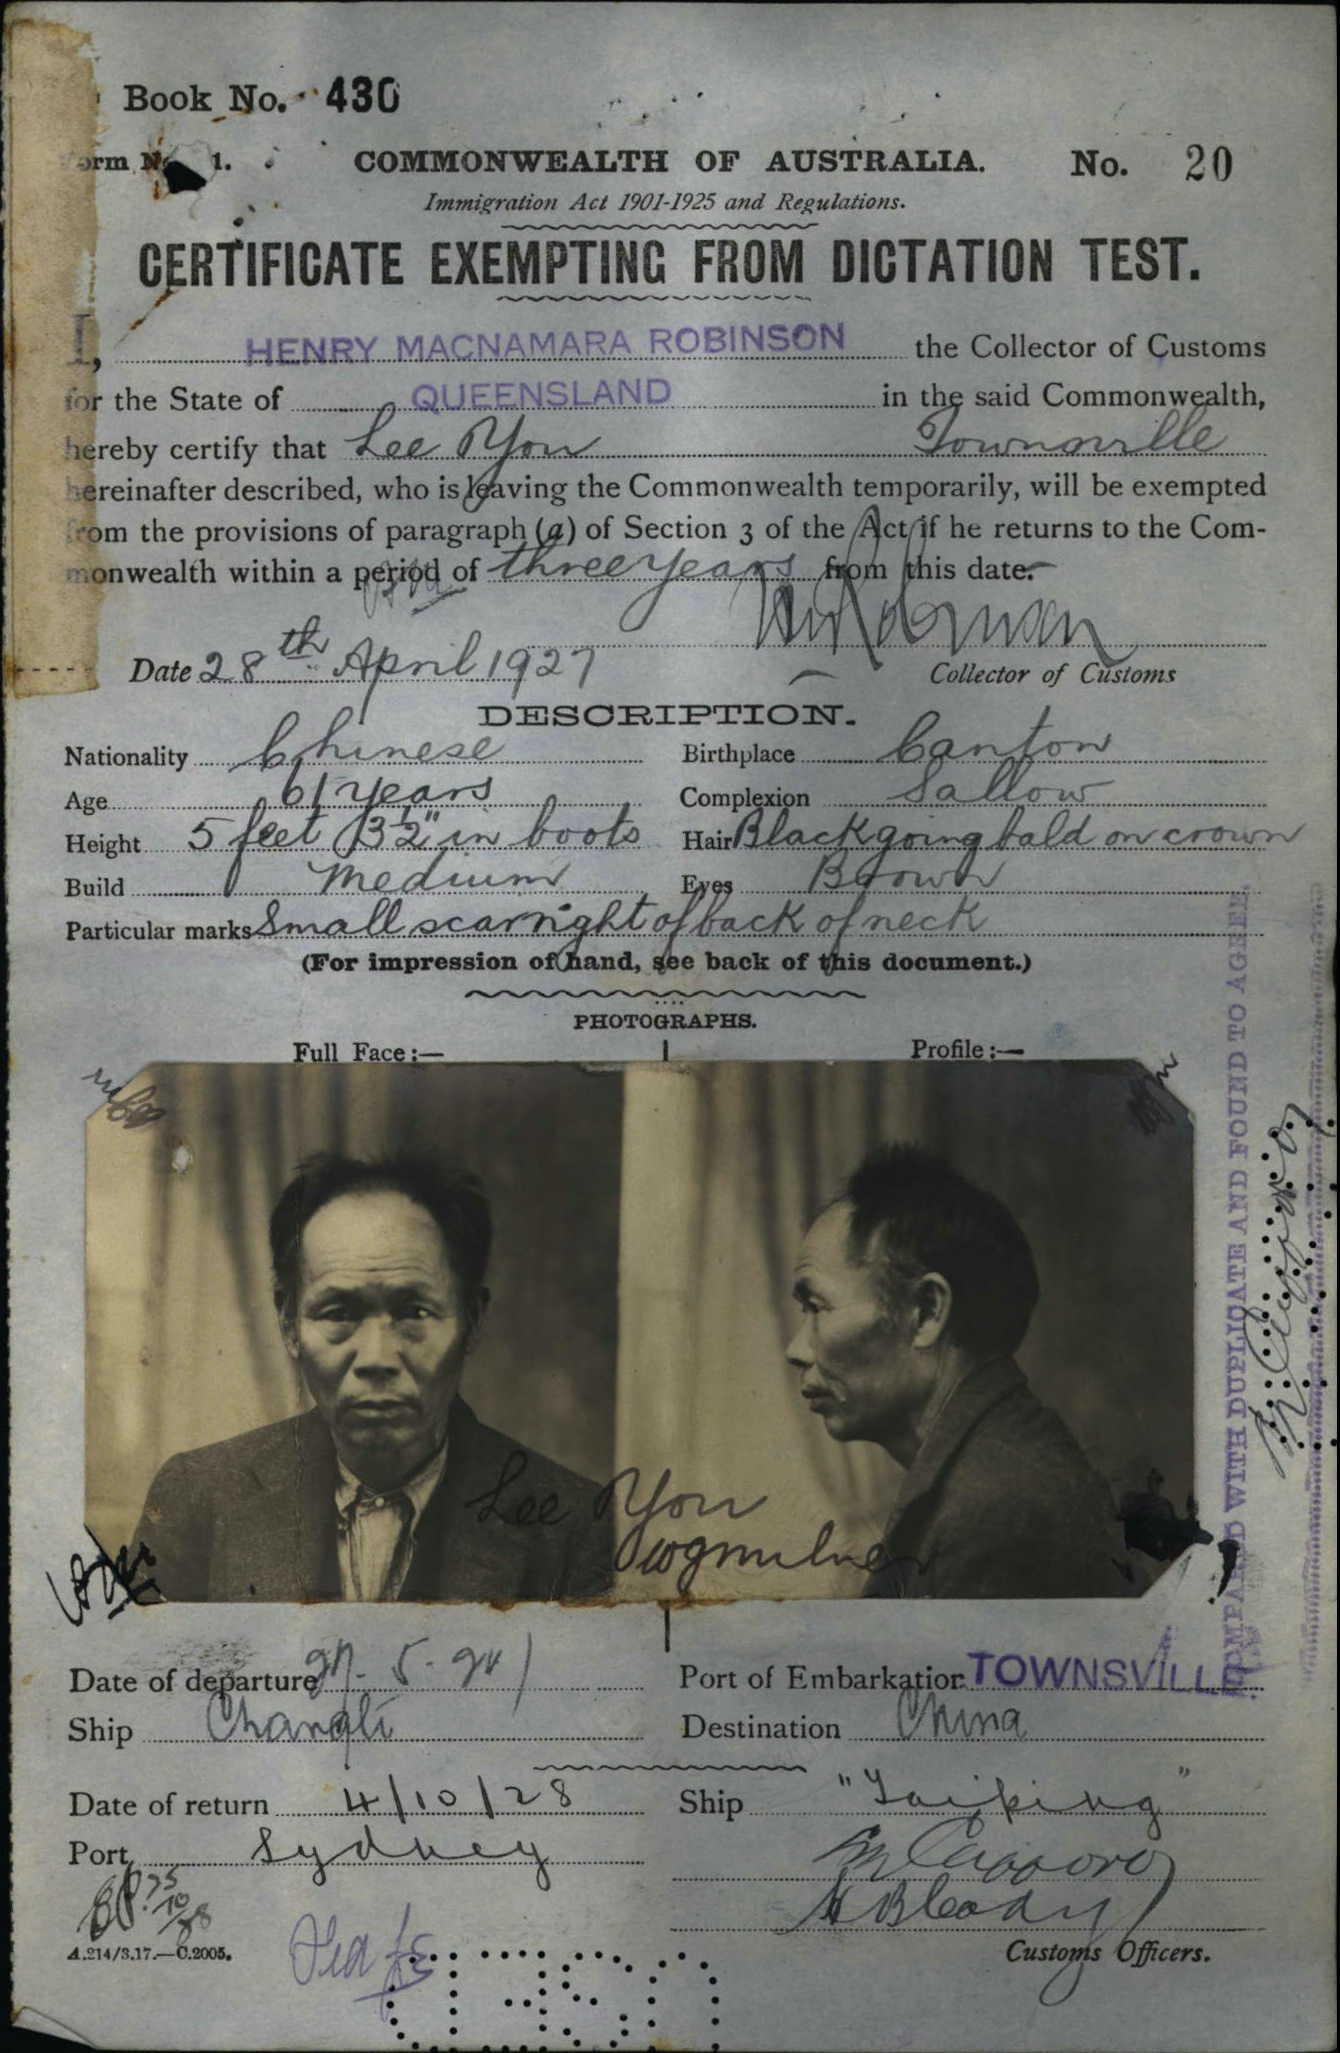 Book No. 430
Form No. 1. COMMONWEALTH OF AUSTRALIA. No. 20
Immigration Act 1901-1925 and Regulations.
CERTIFICATE EXEMPTING FROM DICTATION TEST.
I, HENRY MACNAMARA ROBINSON the Collector of Customs
for the State of QUEENSLAND in the said Commonwealth,
hereby certify that Lee You Townsville
hereinafter described, who is leaving the Commonwealth temporarily, will be exempted
from the provisions of paragraph (a) of Section 3 of the Act if he returns to the Com-
monwealth within a period of three years from this date.
Date 28th April 1927 Collector of Customs
DESCRIPTION.
Nationality Chinese Birthplace Canton
Age 61 years Complexion Sallow
Height 5 feet 3½" in boots Hair Black going bald on crown
Build Medium Eyes Brown
Particular marks Small scar right of back of neck
(For impression of hand, see back of this document.)
PHOTOGRAPHS.
Full Face:— Profile:—
Lee You
Wgmilner
COMPARED WITH DUPLICATE AND FOUND TO AGREE.
Date of departure Port of Embarkation TOWNSVILLE
Ship Changte Destination China
Date of return 4/10/28 Ship "Taiping"
Port Sydney
A.214/3.17.—C.2005. Customs Officers.